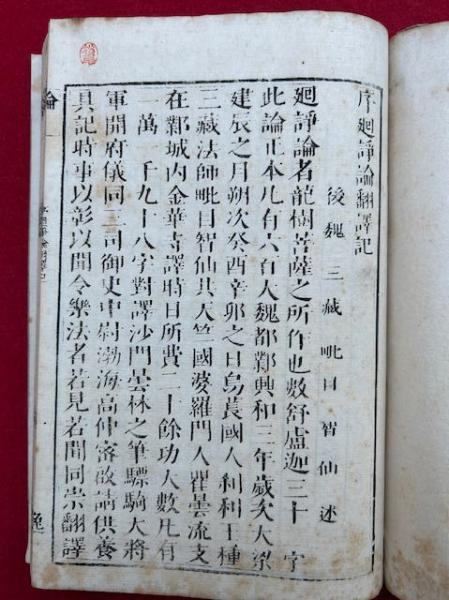 序廻諍論翻譯記
後魏三藏毗目智仙述
廻諍論者龍樹菩薩之所作也數舒盧迦三十 字
此論正本凡有六百大魏都鄴興和三年歲次大梁
建辰之月朔次癸酉辛卯之日烏萇國人刹利王種
三藏法師毗目智仙共天竺國婆羅門人瞿曇流支
在鄴城内金華寺譯時日所費二十餘功大數凡有
一萬 千九十八字對譯沙門曇林之筆驃騎大將
軍開府儀同三司御史中尉渤海高仲密啟請供養
具記時事以彰以聞令樂法者若見若聞同崇翻譯
論